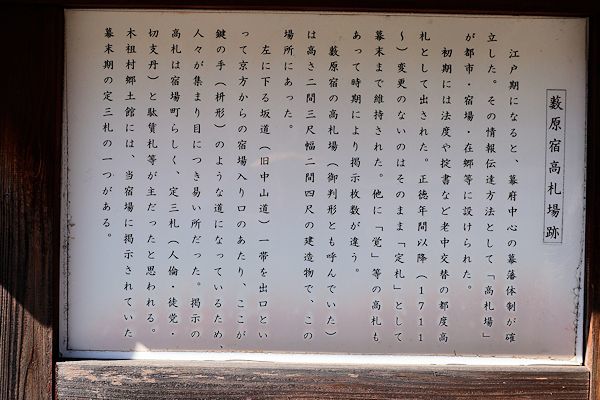 藪原宿高札場跡
江戸期になると、幕府中心の幕藩体制が確
立した。その情報伝達方法として「高札場」
が都市・宿場・在郷等に設けられた。
初期には法度や掟書など老中交替の都度高
札として出された。正徳年間以降(1711
〜)変更のないのはそのまま「定札」として
幕末まで維持された。他に「覚」等の高札も
あって時期により掲示枚数が違う。
藪原宿の高札場(御判形とも呼んでいた)
は高さ二間三尺幅二間四尺の建造物で、この
場所にあった。
左に下る坂道(旧中山道)一帯を出口とい
って京方からの宿場入り口のあたり、ここが
鍵の手(枡形)のような道になっているため、
人々が集まり目につき易い所だった。掲示の
高札は宿場町らしく、定三札(人倫・徒党・
切支丹)と駄賃札等が主だったと思われる。
木祖村郷土館には、当宿場に掲示されていた
幕末期の定三札の一つがある。